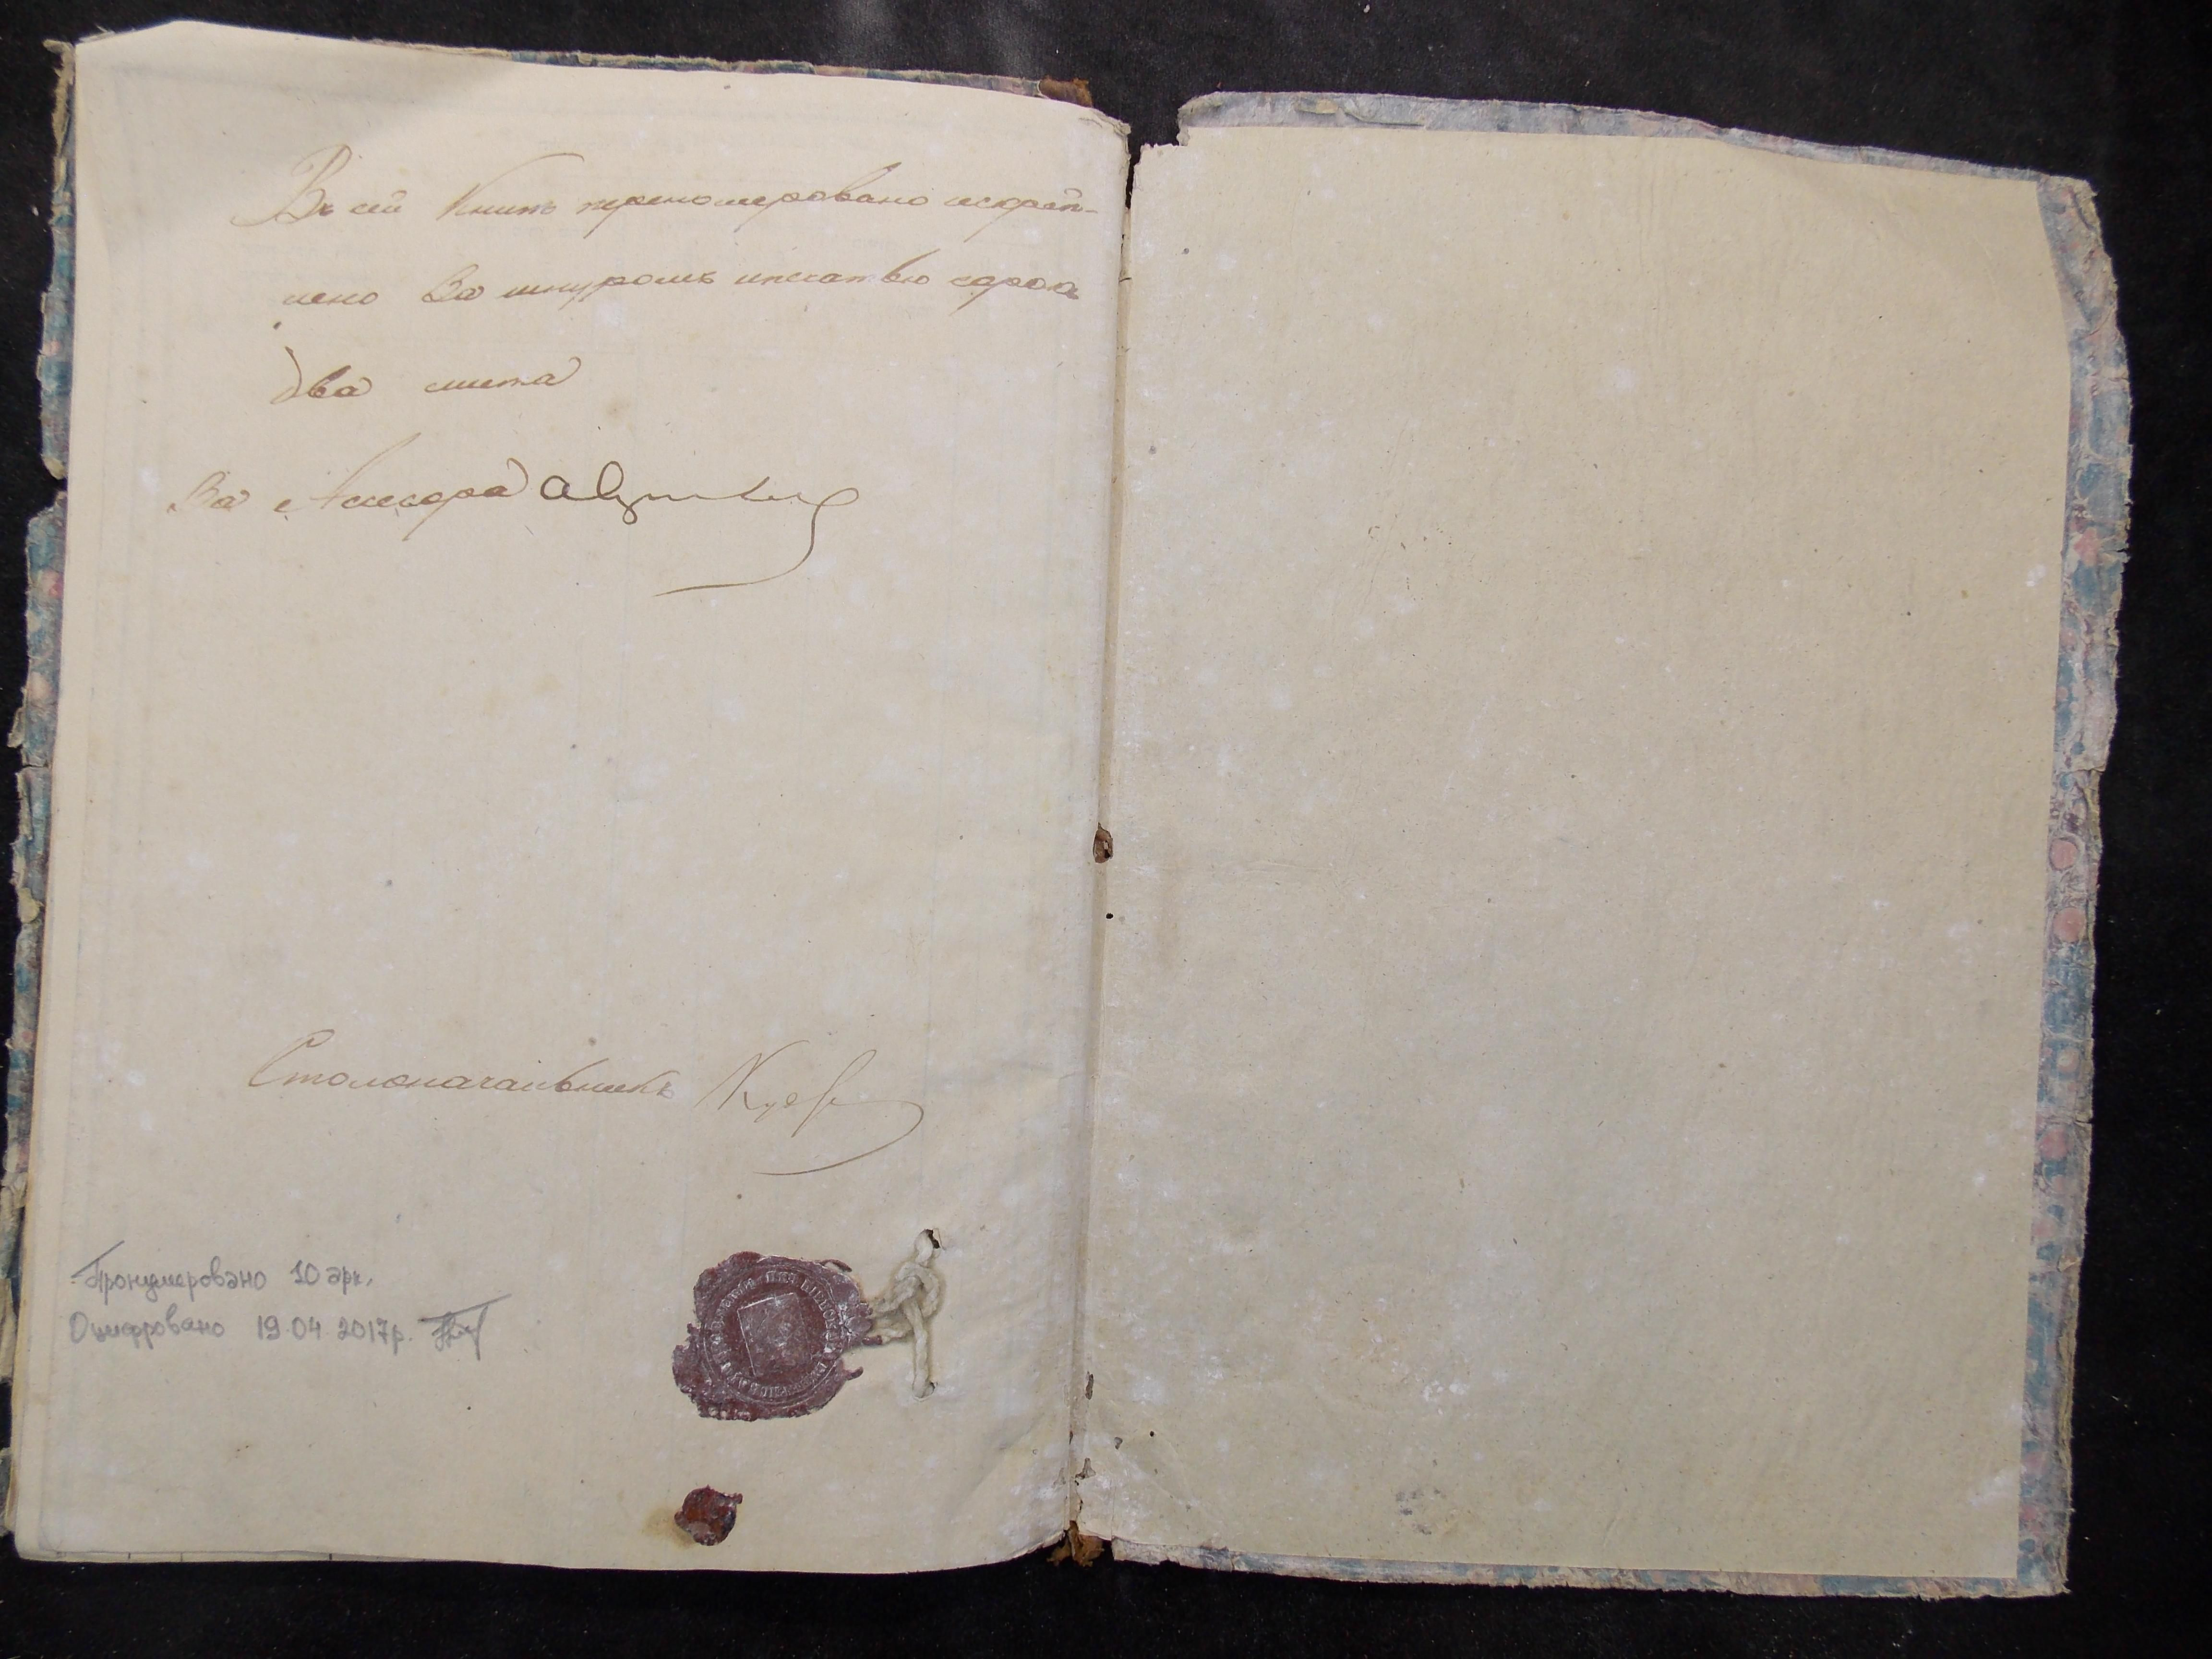 Въ сей Книгѣ перенумеровано искреп-
лено За шнуромъ и печатью сорок
два листа
За Асесора
Столоначальникъ
Пронумеровано 10 арк.
Оцифровано 19.04.2017р.